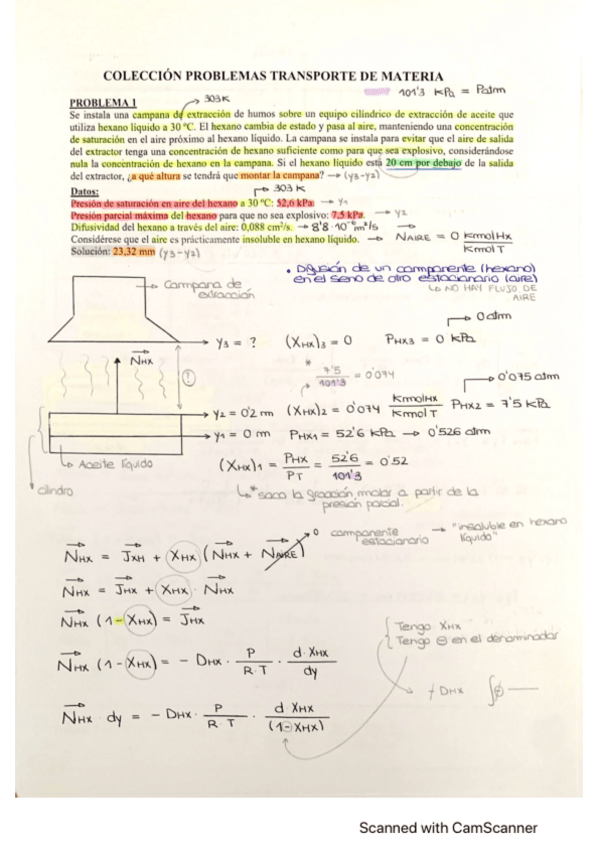 COLECCIÓN PROBLEMAS TRANSPORTE DE MATERIA
101'3 kPa = Patm
PROBLEMA 1
303K
Se instala una campana de extracción de humos sobre un equipo cilíndrico de extracción de aceite que
utiliza hexano líquido a 30 ºC. El hexano cambia de estado y pasa al aire, manteniendo una concentración
de saturación en el aire próximo al hexano líquido. La campana se instala para evitar que el aire de salida
del extractor tenga una concentración de hexano suficiente como para que sea explosivo, considerándose
nula la concentración de hexano en la campana. Si el hexano líquido está 20 cm por debajo de la salida
del extractor, ¿a qué altura se tendrá que montar la campana? → (y3-y2)
Datos:
303 K
Presión de saturación en aire del hexano a 30 ºC: 52,6 kPa. → y1
Presión parcial máxima del hexano para que no sea explosivo: 7,5 kPa. → y2
Difusividad del hexano a través del aire: 0,088 cm²/s. → 8'8·10⁻⁶ m²/s
Considérese que el aire es prácticamente insoluble en hexano líquido. → NAIRE = 0 KmolHx / Kmol T
Solución: 23,32 mm (y3-y2)
• Difusión de un componente (hexano)
en el seno de otro estacionario (aire)
↳ NO HAY FLUJO DE
AIRE
Campana de
extracción
0 atm
y3 = ? (XHX)3 = 0 PHX3 = 0 kPa
NHX
?
* 7'5 / 101'3 = 0'074
0'075 atm
y2 = 0'2 m (XHX)2 = 0'074 KmolHx / Kmol T PHX2 = 7'5 kPa
y1 = 0 m PHX1 = 52'6 kPa → 0'526 atm
Aceite líquido
(XHX)1 = PHX / PT = 52'6 / 101'3 = 0'52
cilindro
↳ * saco la fracción molar a partir de la
presión parcial.
NHX = JXH + XHX (NHX + NAIRE) 0 componente
estacionario → "insoluble en hexano
líquido"
NHX = JHX + XHX · NHX
NHX (1-XHX) = JHX
Tengo XHX
Tengo ⊖ en el denominador
NHX (1-XHX) = - DHX · P / R·T · d·XHX / dy
+ DHX ∫
NHX · dy = - DHX · P / R·T · d·XHX / (1-XHX)
Scanned with CamScanner